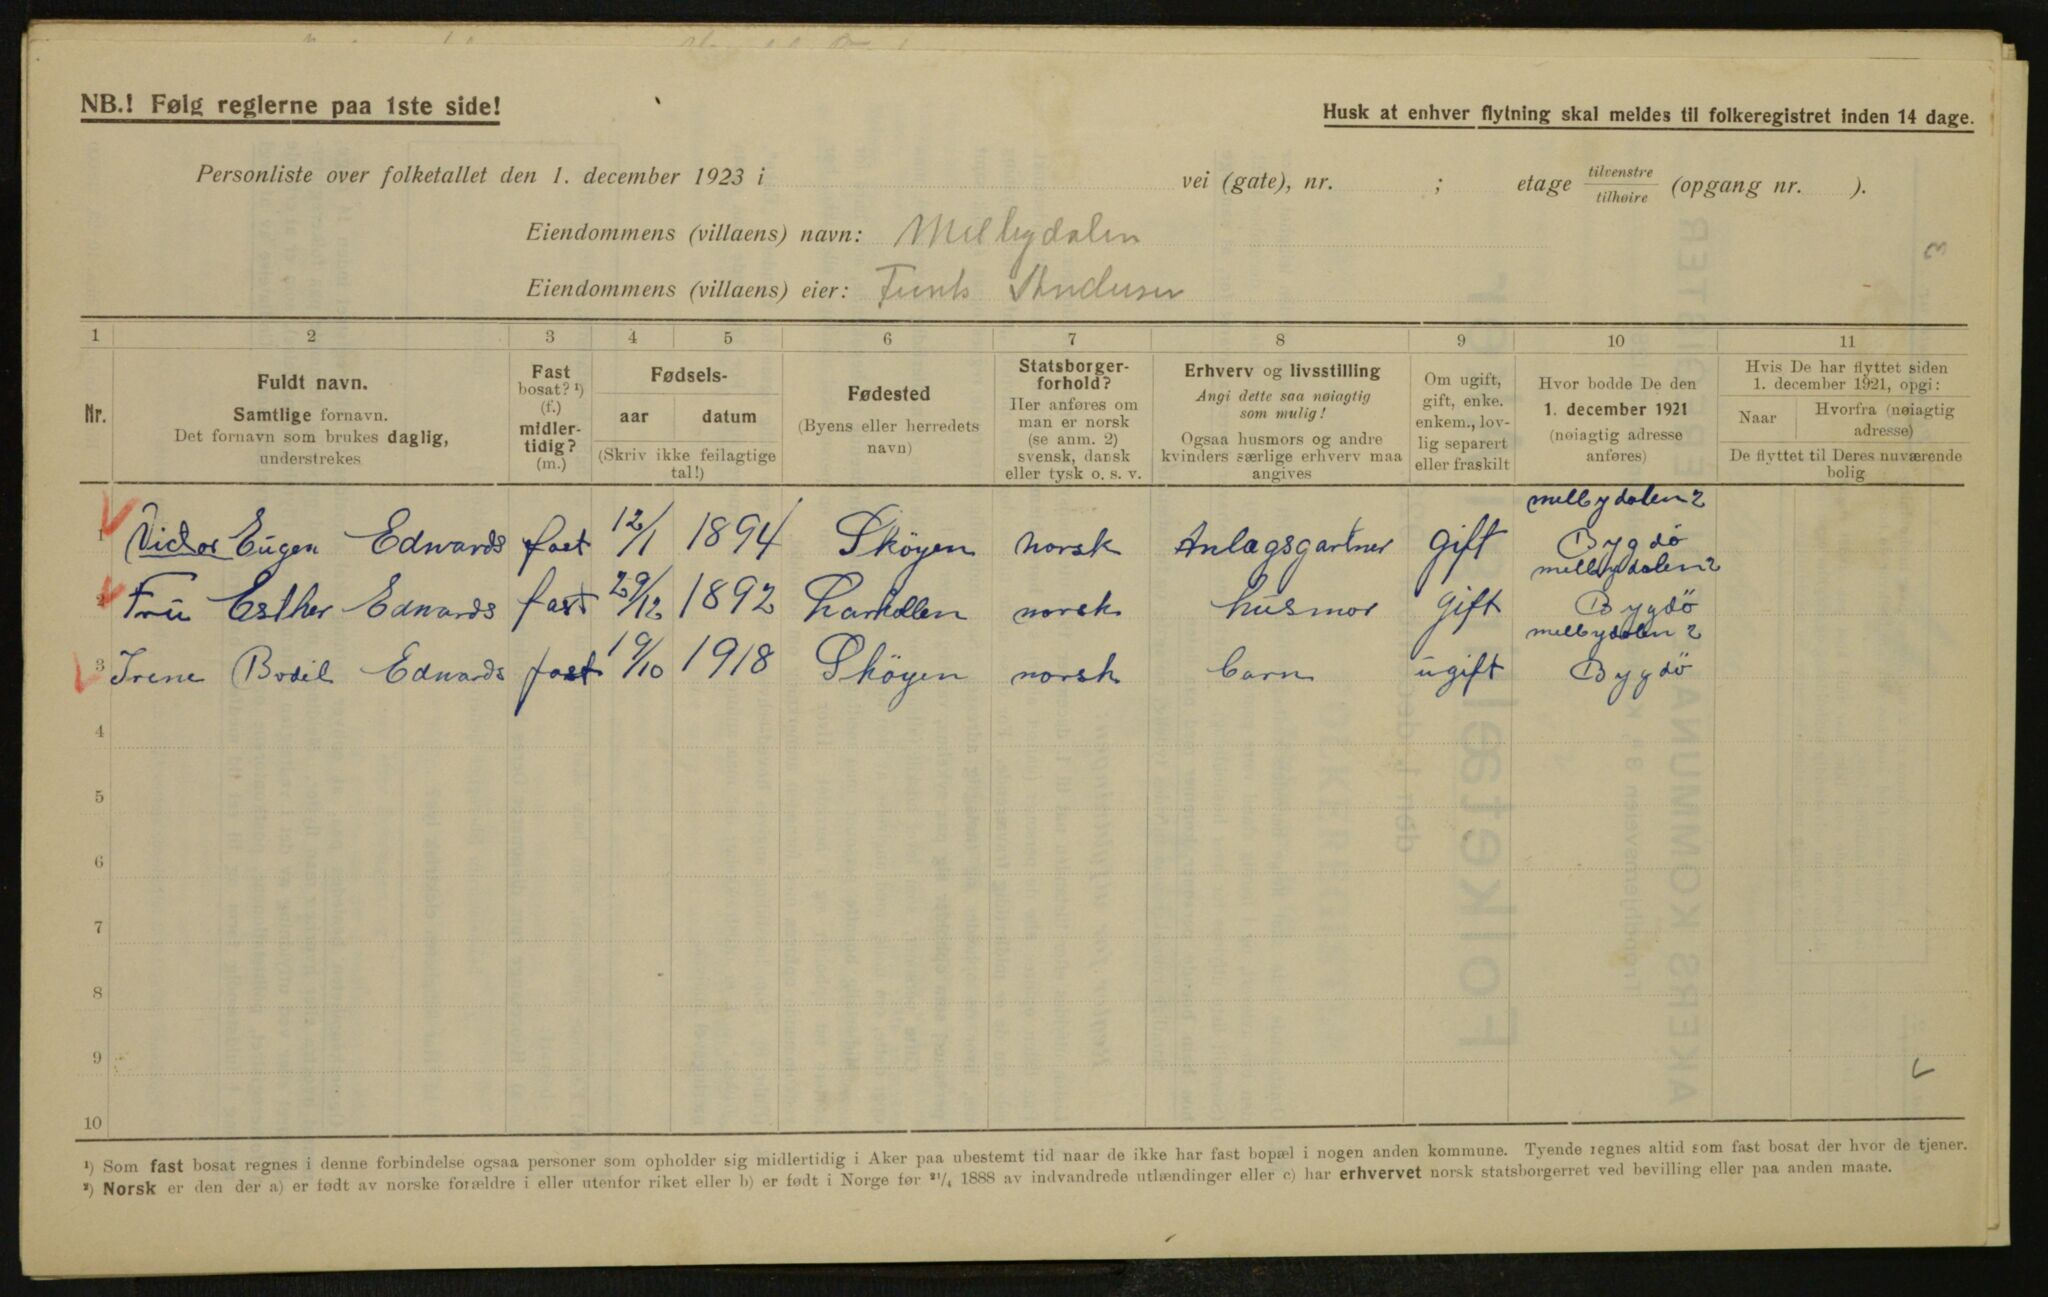 NB.! Følg reglerne paa 1ste side!
Husk at enhver flytning skal meldes til folkeregistret inden 14 dage.
Personliste over folketallet den 1. december 1923 i vei (gate), nr. ; etage tilvenstre/tilhøire (opgang nr. ).
Eiendommens (villaens) navn: Melbydalen
Eiendommens (villaens) eier: Andersen
1 2 3 4 5 6 7 8 9 10 11
Nr.
Fuldt navn.
Samtlige fornavn.
Det fornavn som brukes daglig,
understrekes
Fast
bosat? ¹)
(f.)
midler-
tidig?
(m.)
Fødsels-
aar datum
(Skriv ikke feilagtige
tal!)
Fødested
(Byens eller herredets
navn)
Statsborger-
forhold?
Her anføres om
man er norsk
(se anm. 2)
svensk, dansk
eller tysk o. s. v.
Erhverv og livsstilling
Angi dette saa nøiagtig
som mulig!
Ogsaa husmors og andre
kvinders særlige erhverv maa
angives
Om ugift,
gift, enke.
enkem., lov-
lig separert
eller fraskilt
Hvor bodde De den
1. december 1921
(nøiagtig adresse
anføres)
Hvis De har flyttet siden
1. december 1921, opgi:
Naar
Hvorfra (nøiagtig
adresse)
De flyttet til Deres nuværende
bolig
melbydalen 2
1 Victor Eugen Edwards fast 12/1 1894 Sköyen norsk Anlægsgartner gift Bygdö
melbydalen 2
2 Fru Esther Edwards fast 29/12 1892 norsk husmor gift Bygdö
melbydalen 2
3 Irene Bodil Edwards fast 19/10 1918 Sköyen norsk barn ugift Bygdö
4
5
6
7
8
9
10
¹) Som fast bosat regnes i denne forbindelse ogsaa personer som opholder sig midlertidig i Aker paa ubestemt tid naar de ikke har fast bopæl i nogen anden kommune. Tyende regnes altid som fast bosat der hvor de tjener.
²) Norsk er den der a) er født av norske forældre i eller utenfor riket eller b) er født i Norge før ²¹/₄ 1888 av indvandrede utlændinger eller c) har erhvervet norsk statsborgerret ved bevilling eller paa anden maate.
3